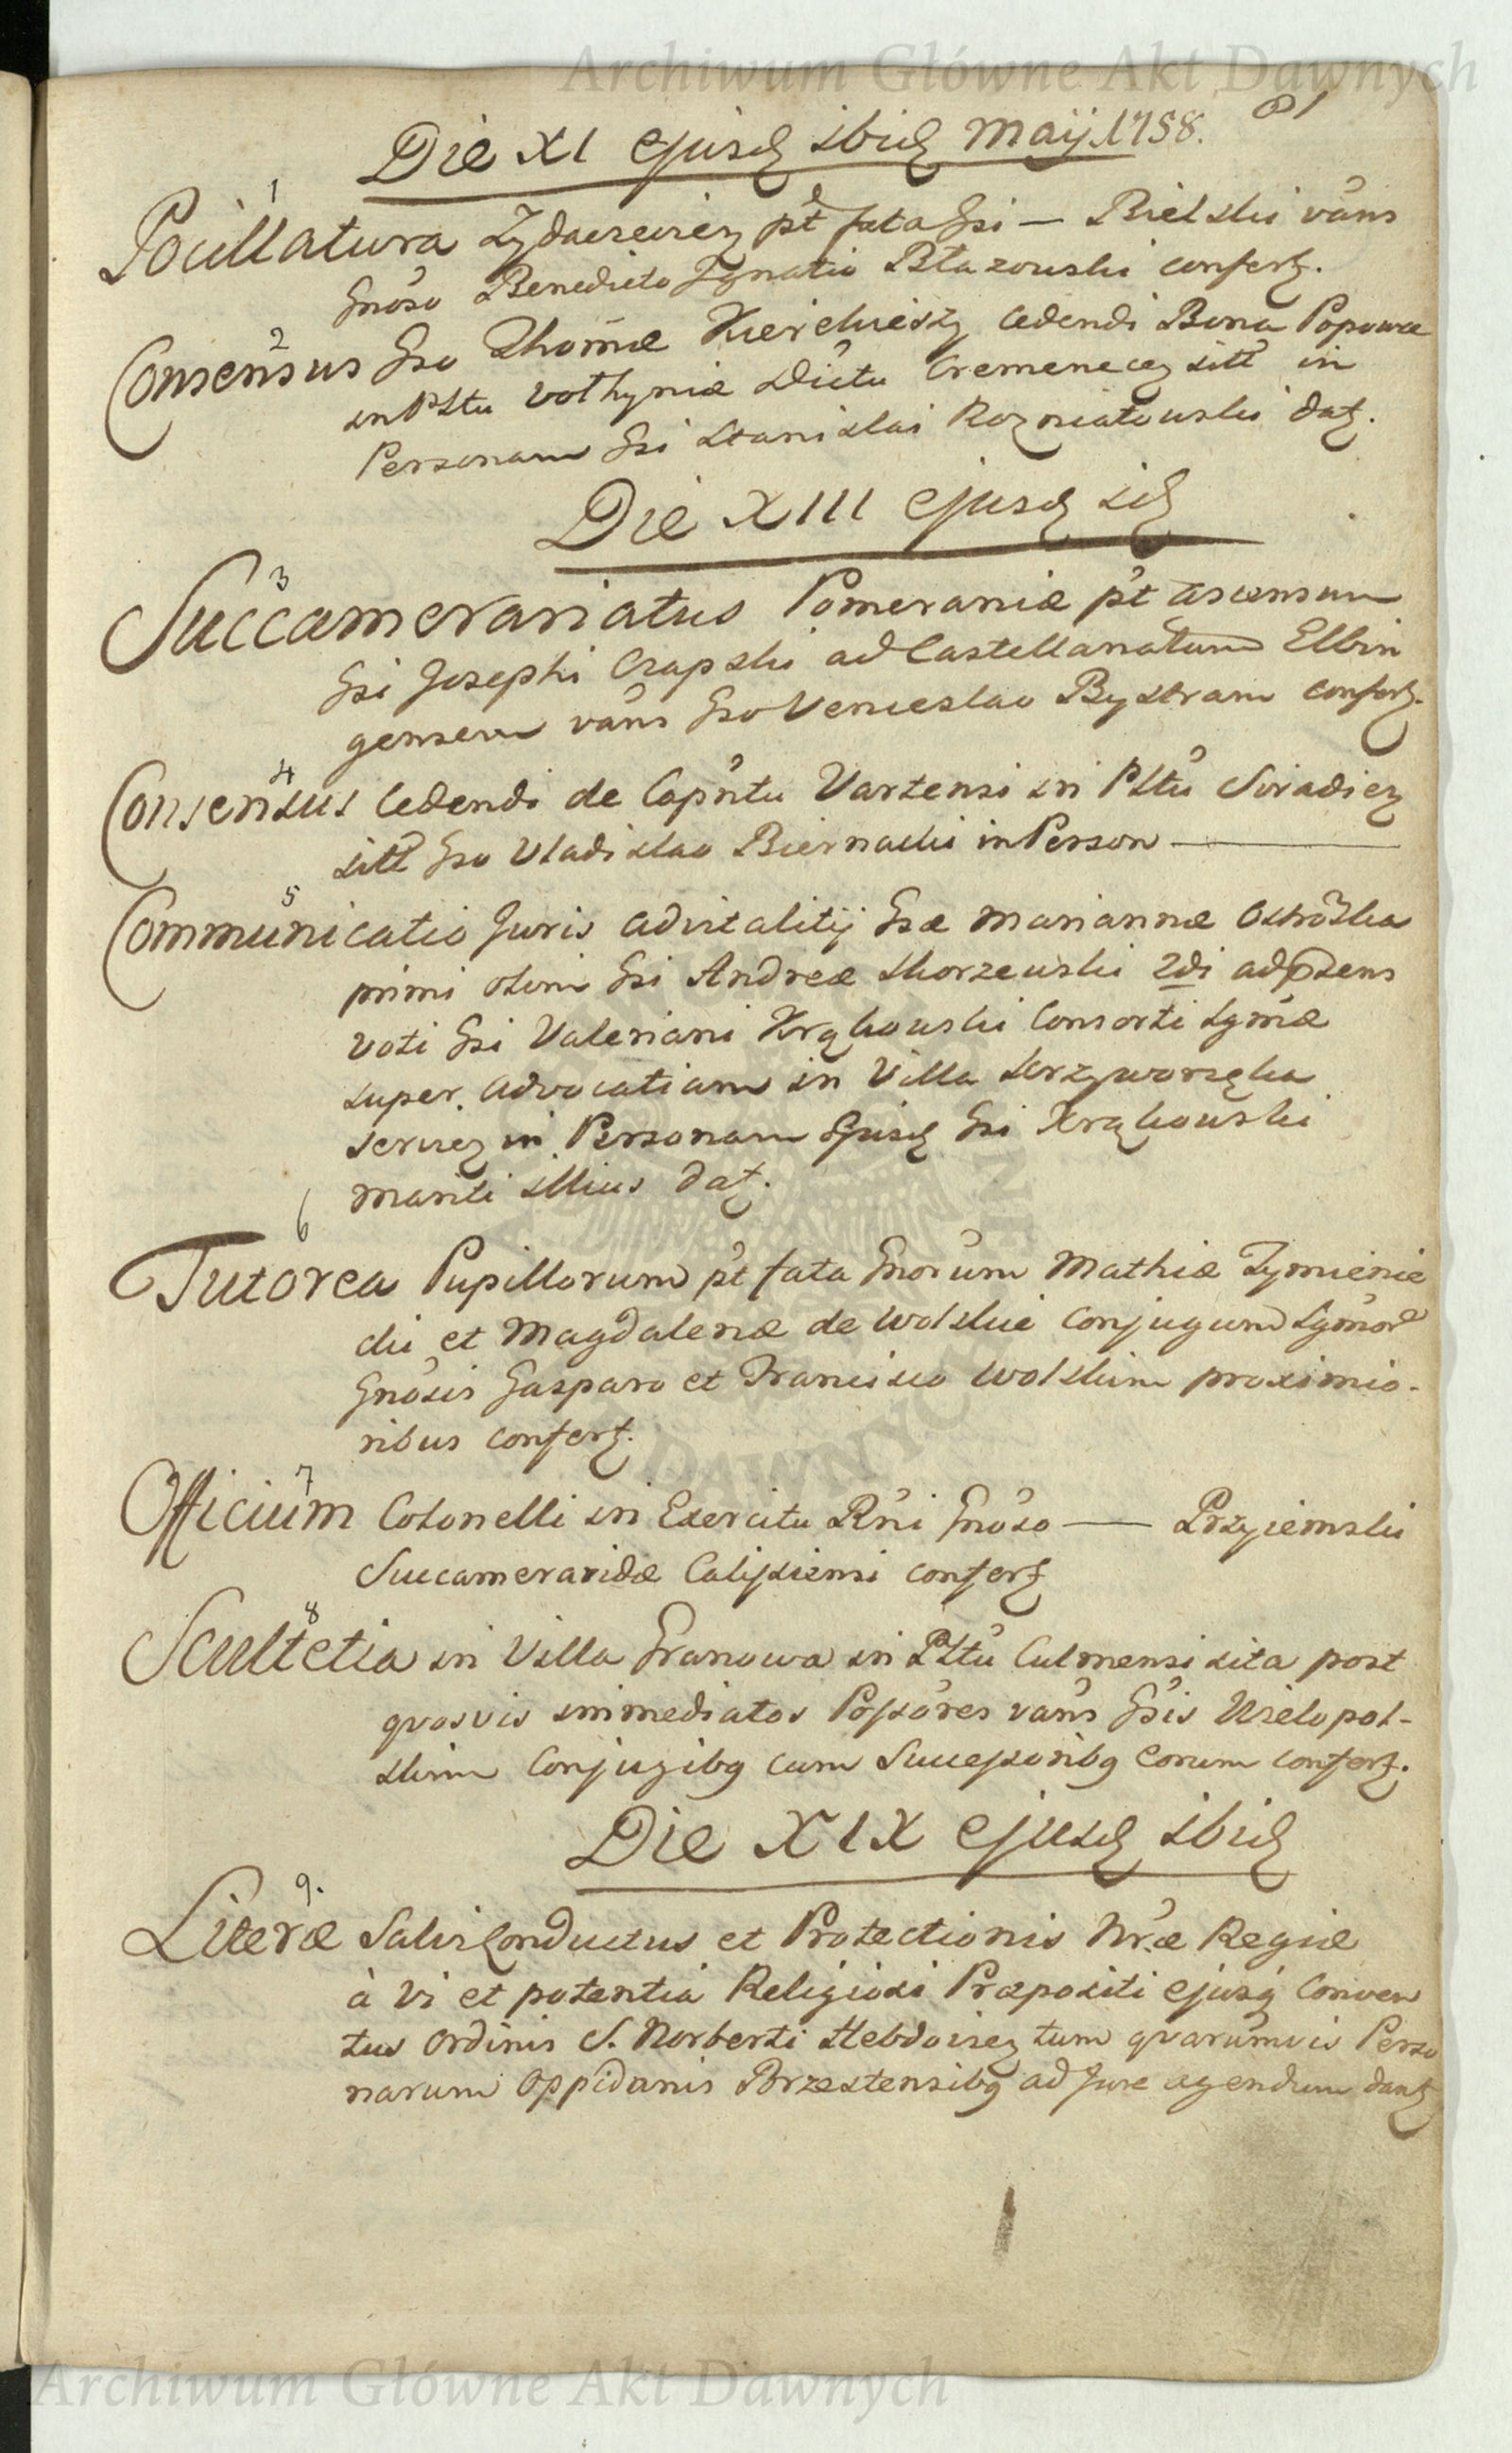 Archiwum Główne Akt Dawnych
81
Die XI ejusd ibid Maij 1758.
1
Pocillatura Zydacscien pt fata Gsi — Bielski vans
Gnoso Benedicto Ignatio Błazowski confert.
2
Consensus Gso Thomæ cedendi Bona Popowce
in Pttu Volhyniæ Dictu Cremenecen sitt in
Personam Gsi Stanislai Rozniatowski dat.
Die XIII ejusd id
3
Succamerariatus Pomeraniæ pt ascensum
Gsi Josephi Czapski ad Castellanatum Elbin
gensem vans Gso Venceslao Bystram confert.
4
Consensus cedendi de Capntu Vartensi in Pttu Siradien
sitt Gso Vladislao Biernacki in Person —
5
Communicatio Juris advitalitij Gsæ Mariannæ Ostroska
primi olim Gsi Andreæ Skorzewski 2di ad psens
voti Gsi Valeriani Krąkowski Consorti Lgmæ
super advocatiam in Villa
in Personam Ejusd Gsi Krąkowski
mariti illius dat.
6
Tutorea Pupillorum pt fata Gnorum Mathiæ Zymienie
cki et Magdalenæ de Wolskie Conjugum Lgmor
Gnosis Gasparo et Francisco Wolskim proximio-
ribus confert.
7
Officium Colonelli in Exercitu Rni Gnoso — Przyiemski
Succameraridæ Calissiensi confert
8
Scultetia in Villa Granowa in Pttu Culmensi sita post
quosvis immediatos Possores vans Gsis Wielopol-
skim Conjugibq cum Successoribq eorum confert.
Die XIX ejusd ibid
9.
Literæ Salvi Conductus et Protectionis Nræ Regiæ
à vi et potentia Religiosi Præpositi ejusq Conven
tus Ordinis S. Norberti Hebdovien tum quarumvis Perso
narum Oppidanis Brzestensibq ad Jure agendum dant
Archiwum Główne Akt Dawnych